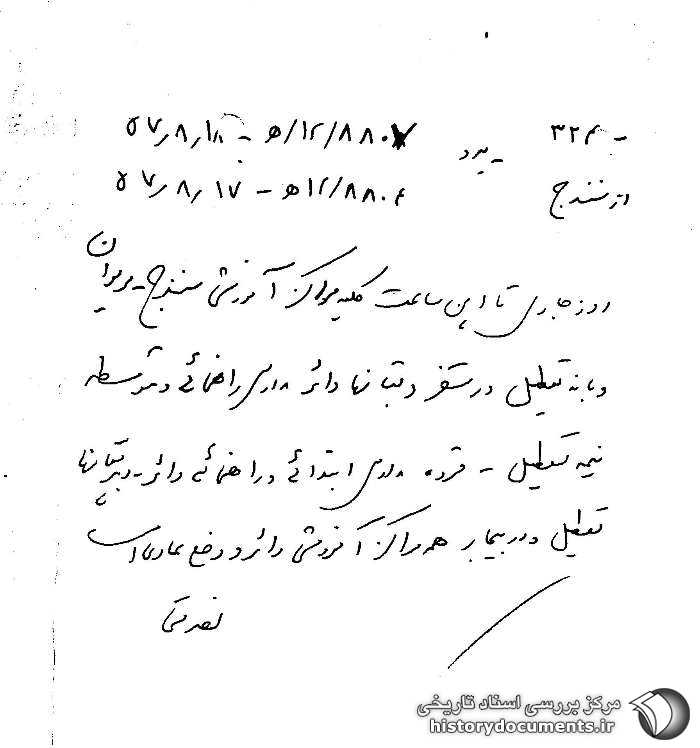 به ۳۲۴ - پیرو ۱۲/۸۸۰۷/ﻫ - ۵۷/۸/۱۸
از سنندج ۱۲/۸۸۰۶/ﻫ - ۵۷/۸/۱۷
روز جاری تا این ساعت کلیه مراکز آموزشی سنندج - مریوان
و بانه تعطیل در سقز دبستانها دائر مدارس راهنمائی و متوسطه
نیمه تعطیل - قروه مدارس ابتدائی و راهنمائی دائر - دبیرستانها
تعطیل و در بیجار همه مراکز آموزشی دائر و وضع عادی است
مرکز بررسی اسناد تاریخی
historydocuments.ir